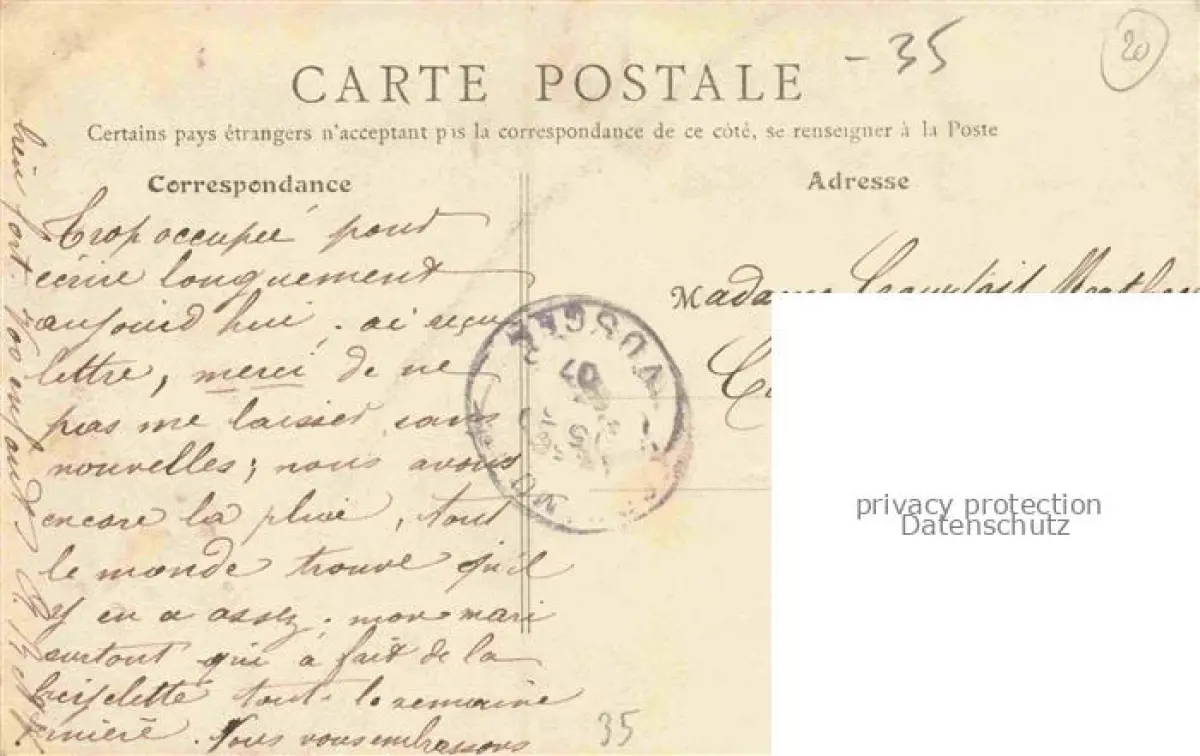 - 35
20
CARTE POSTALE
Certains pays étrangers n'acceptant pas la correspondance de ce côté, se renseigner à la Poste
Correspondance
Adresse
Trop occupée pour
écrire longuement
aujourd'hui, ai reçu
lettre, merci de ne
pas me laisser sans
nouvelles; nous avons
encore la pluie, tout
le monde trouve qu'il
y en a assez. mon mari
surtout qui a fait de la
bicyclette tout la semaine
Vous vous embrassons
bien fort. vos enfants
Madame
VOSGES
07
privacy protection
Datenschutz
35